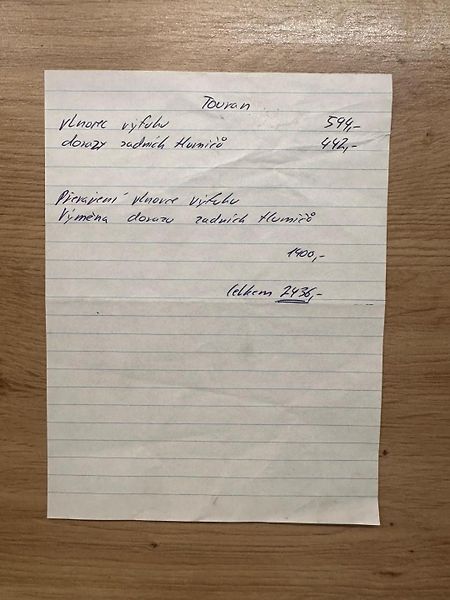 Touran
vlnovec výfuku 594,-
dorazy zadních tlumičů 442,-
Převaření vlnovce výfuku
Výměna dorazu zadních tlumičů
1400,-
Celkem 2436,-